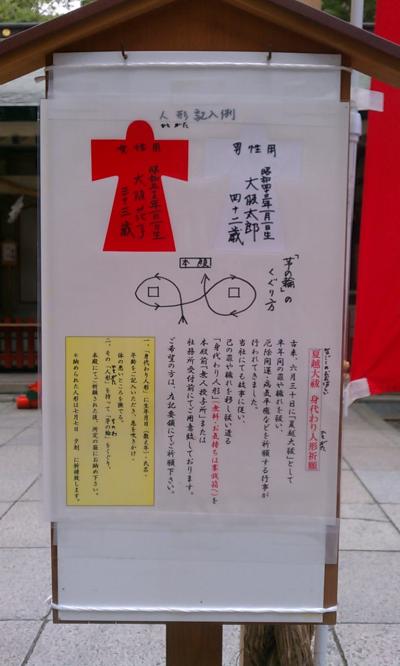 人形記入例
かたがた
女性用
昭和五十三年一月一日生
大阪花子
三十三歳
男性用
昭和四十三年一月一日生
大阪太郎
四十二歳
本殿
「茅の輪」の
くぐり方
なごしのおおはらい
夏越大祓 身代わり人形祈願
古来、六月三十日に「夏越大祓」として
半年間の罪や穢れを祓い、
厄除開運・病気平癒などを祈願する行事が
行われてきました。
当社にても故事に従い、
己の罪や穢れを移し祓い遣る
「身代わり人形」(無料・お気持ちは賽銭箱へ)を
本殿前「無人授与所」または
社務所受付前にてご用意致しております。
ご希望の方は、左記要領にてご祈願下さい。
一、「身代わり人形」に生年月日(数え年)・氏名・
年齢をご記入いただき、息を吹きかけ、
体の悪いところを撫でる。
二、その「人形」を持って「茅の輪」をくぐり、
本殿にてご祈願された後、所定の箱にお納め下さい。
※納められた人形は七月七日 夕刻 に祈祷致します。